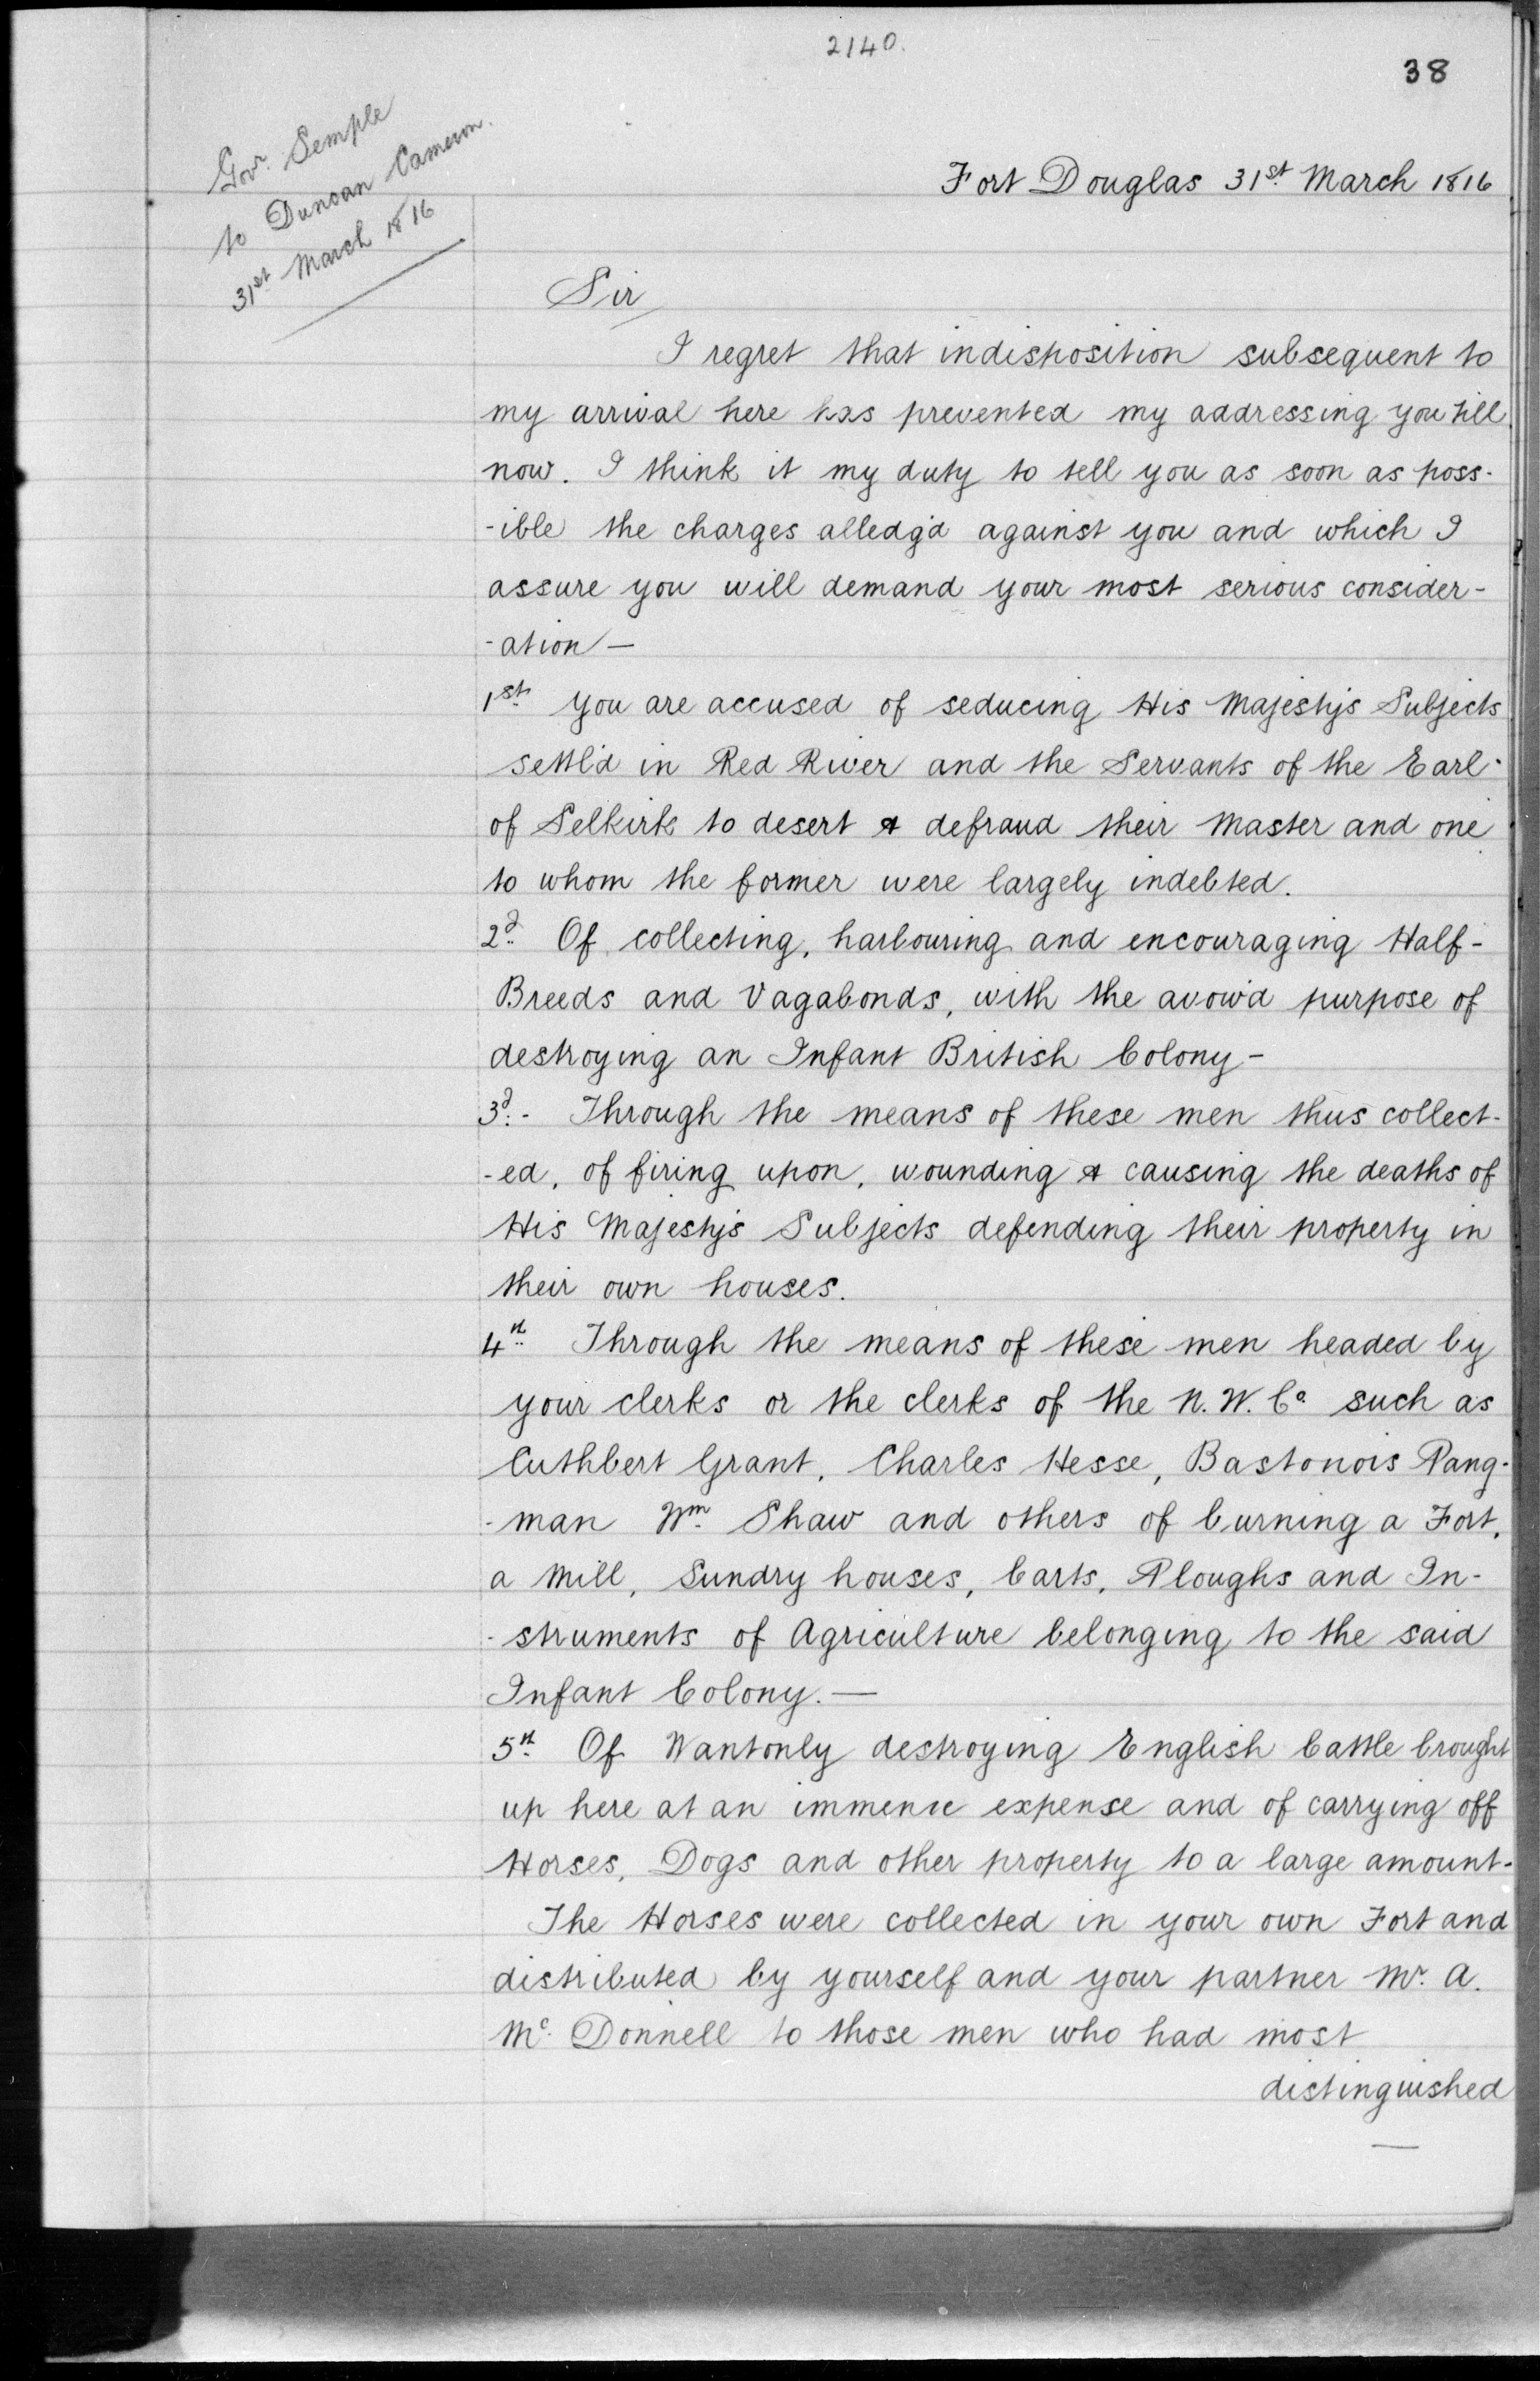 2140.
38
Govr. Semple
to Duncan Cameron.
31st March 1816
Fort Douglas 31st March 1816
Sir
I regret that indisposition subsequent to
my arrival here has prevented my addressing you till
now. I think it my duty to tell you as soon as poss-
-ible the charges alledg'd against you and which I
assure you will demand your most serious consider-
-ation —
1st you are accused of seducing His Majesty's Subjects
settl'd in Red River and the Servants of the Earl
of Selkirk to desert & defraud their Master and one
to whom the former were largely indebted.
2d Of collecting, harbouring and encouraging Half-
Breeds and Vagabonds, with the avow'd purpose of
destroying an Infant British Colony -
3d - Through the means of these men thus collect-
-ed, of firing upon, wounding & causing the deaths of
His Majesty's Subjects defending their property in
their own houses.
4th Through the means of these men headed by
your clerks or the clerks of the N. W. Co. such as
Cuthbert Grant, Charles Hesse, Bastonois Pang-
-man Wm. Shaw and others of burning a Fort,
a Mill, Sundry houses, Carts, Ploughs and In-
-struments of Agriculture belonging to the said
Infant Colony. —
5th Of Wantonly destroying English Cattle brought
up here at an immense expense and of carrying off
Horses, Dogs and other property to a large amount -
The Horses were collected in your own Fort and
distributed by yourself and your partner Mr. A.
Mc. Donnell to those men who had most
distinguished